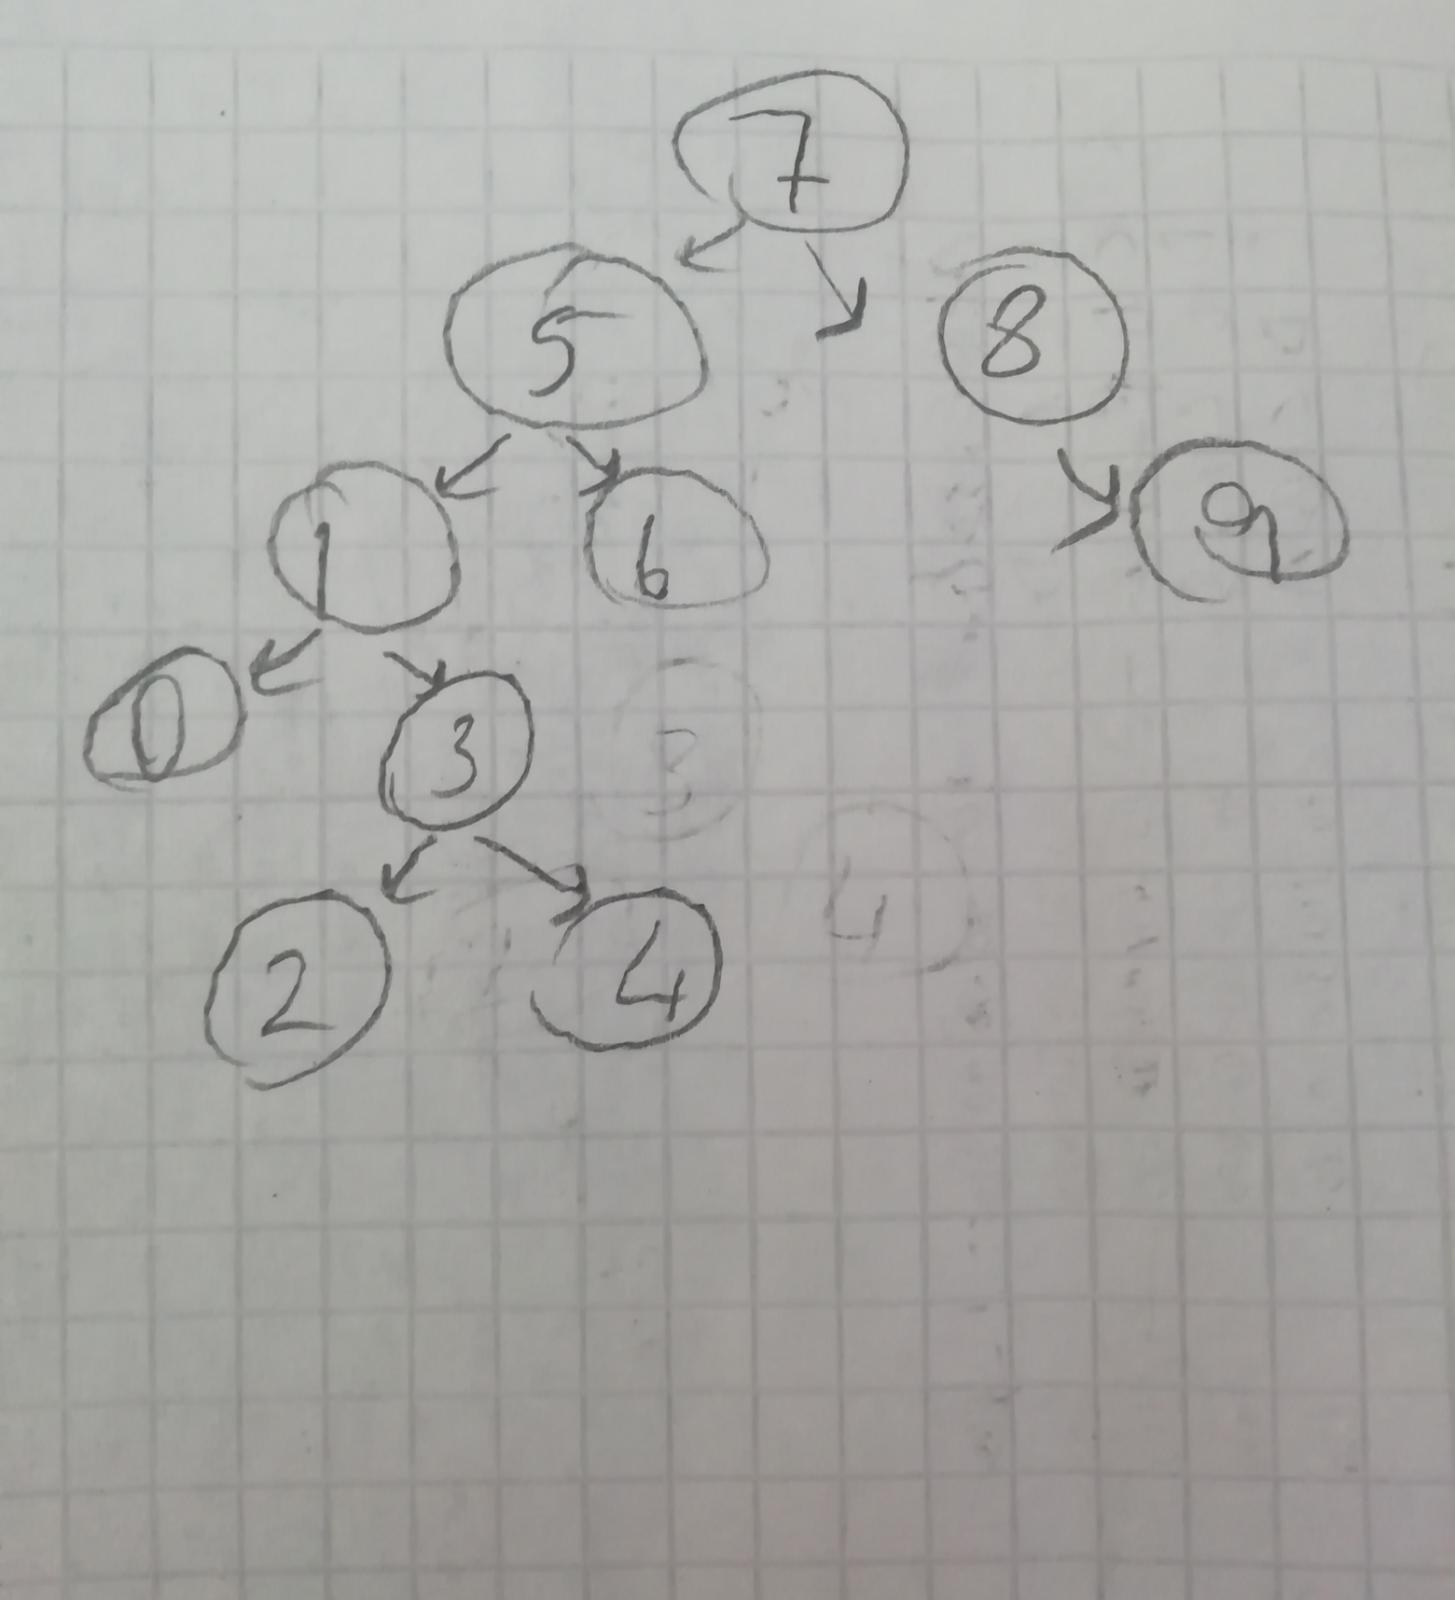 7
5 8
1 6 9
0 3
2 4